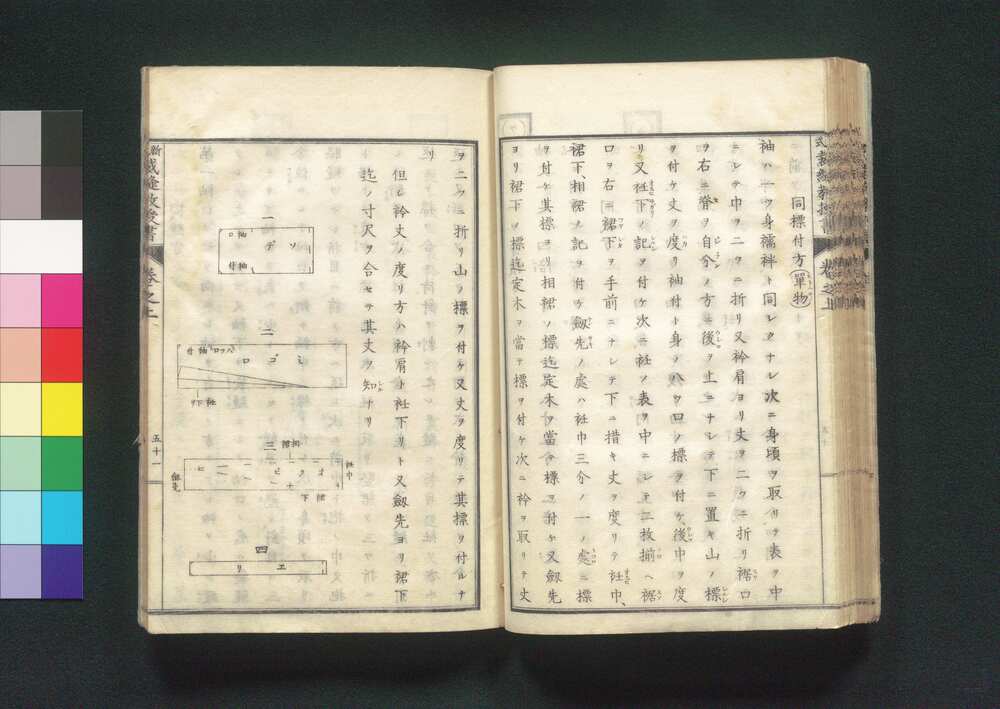 同標付方(單物)
袖ハ一ツ身襦袢ト同シクナレ次ニ身頃ヲ取リテ表ヲ中
ニシテ巾ヲ二ツニ折リ又衿肩ヨリ丈ヲ二ツニ折リ裾口
ヲ右ニ脊ヲ自分ノ方ニ後ヲ上ニナシテ下ニ置キ山ノ標
ヲ付ケ丈ヲ度リ袖付ト身ヲ八ツ口ノ標ヲ付ケ後巾ヲ度
リ又衽下ノ記ヲ付ケ次ニ衽ノ表ヲ中ニシテ二枚揃ヘ裾
口ヲ右ニ裾下ヲ手前ニナシテ下ニ措キ丈ヲ度リテ衽巾、
裾下、相裾ノ記ヲ付ケ劔先ノ處ハ衽巾三分ノ一ノ處ニ標
ヲ付ケ其標ヨリ相裾ノ標迄定木ヲ當テ標ヲ付ケ又劔先
ヨリ裾下ノ標迄定木ヲ當テ標ヲ付ケ次ニ衿ヲ取リテ丈
ヲ二ツニ折リ山ノ標ヲ付ケ又丈ヲ度リテ其標ヲ付ルナ
リ
但シ衿丈ノ度リ方ハ衿肩ト衽下リト又劔先ヨリ裾下
迄ノ寸尺ヲ合セテ其丈ヲ知ナリ
一
ソデ
袖口
袖付
二
ミゴロ
八ツ口
袖付
衽下リ
三
相裾
衽巾
裾下
劔先
四
エリ
裁縫教授書
卷之上
五十一